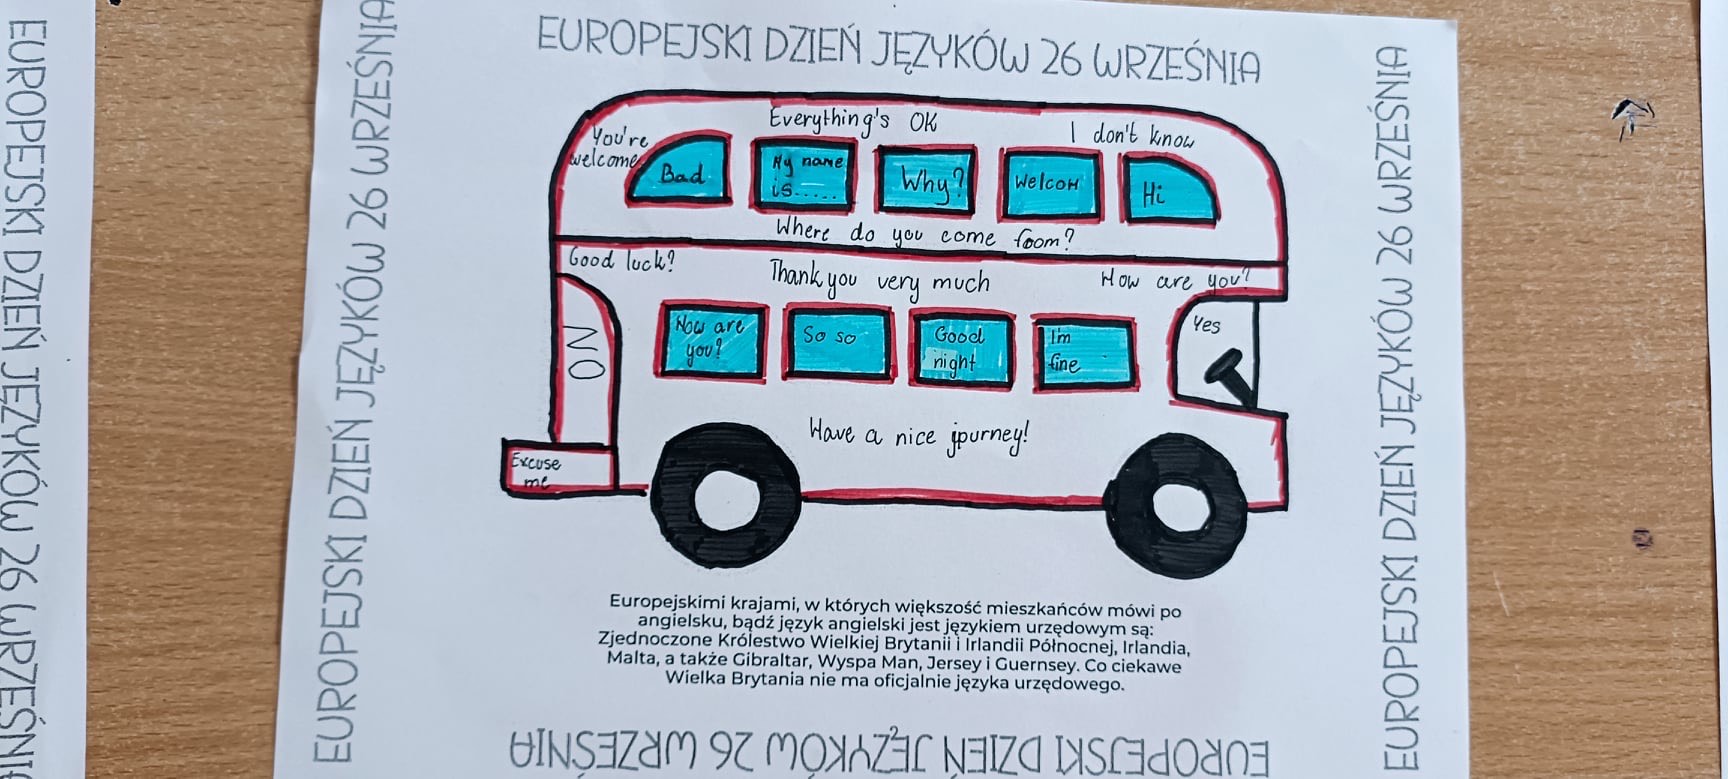 EUROPEJSKI DZIEŃ JĘZYKÓW 26 WRZEŚNIA
EUROPEJSKI DZIEŃ JĘZYKÓW 26 WRZEŚNIA
EUROPEJSKI DZIEŃ JĘZYKÓW 26 WRZEŚNIA
Everything's OK
I don't know
You're
welcome
Bad
My name
is.....
Why?
Welcom
Hi
Where do you come foom?
Good luck?
Thank you very much
How are you?
NO
Now are
you?
So so
Good
night
I'm
fine
Yes
Have a nice journey!
Excuse
me
Europejskimi krajami, w których większość mieszkańców mówi po
angielsku, bądź język angielski jest językiem urzędowym są:
Zjednoczone Królestwo Wielkiej Brytanii i Irlandii Północnej, Irlandia,
Malta, a także Gibraltar, Wyspa Man, Jersey i Guernsey. Co ciekawe
Wielka Brytania nie ma oficjalnie języka urzędowego.
EUROPEJSKI DZIEŃ JĘZYKÓW 26 WRZEŚNIA
EUROPEJSKI DZIEŃ JĘZYKÓW 26 WRZEŚNIA